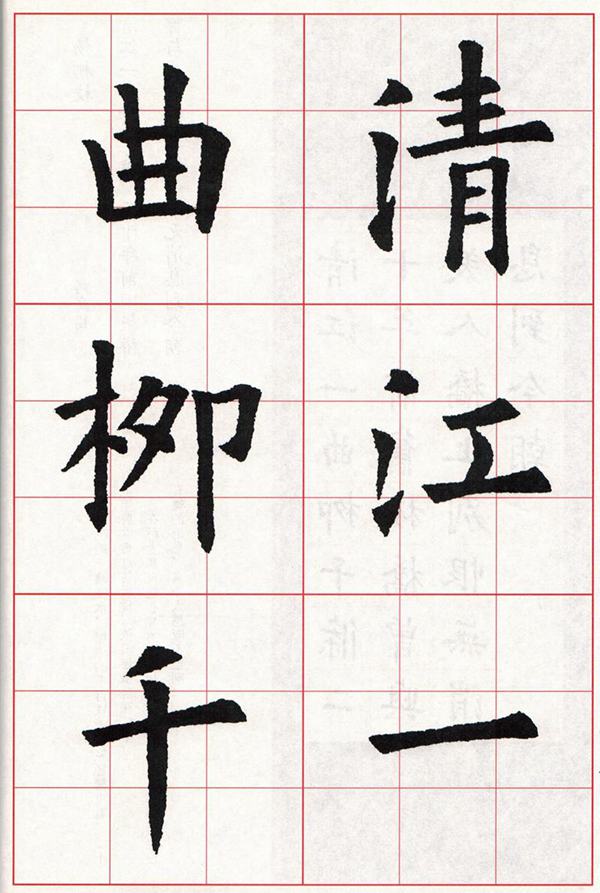 清江一
曲柳千